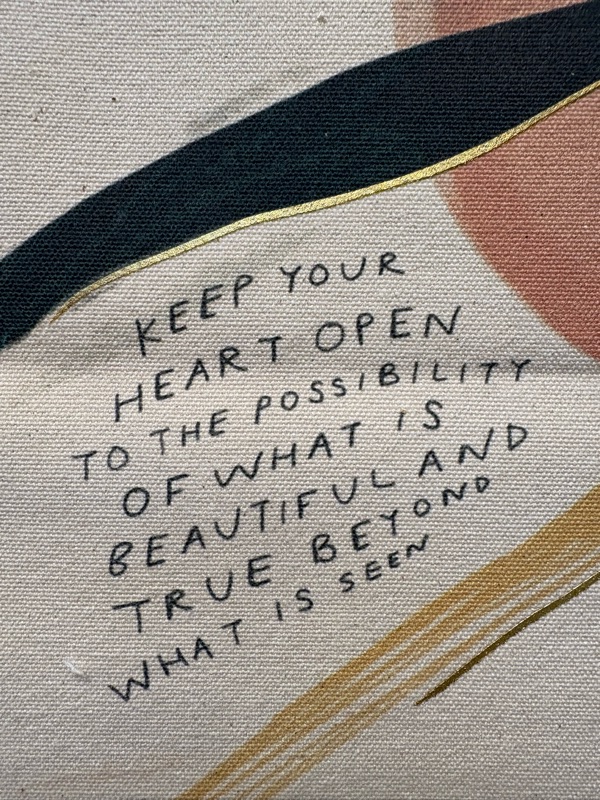 KEEP YOUR
HEART OPEN
TO THE POSSIBILITY
OF WHAT IS
BEAUTIFUL AND
TRUE BEYOND
WHAT IS SEEN